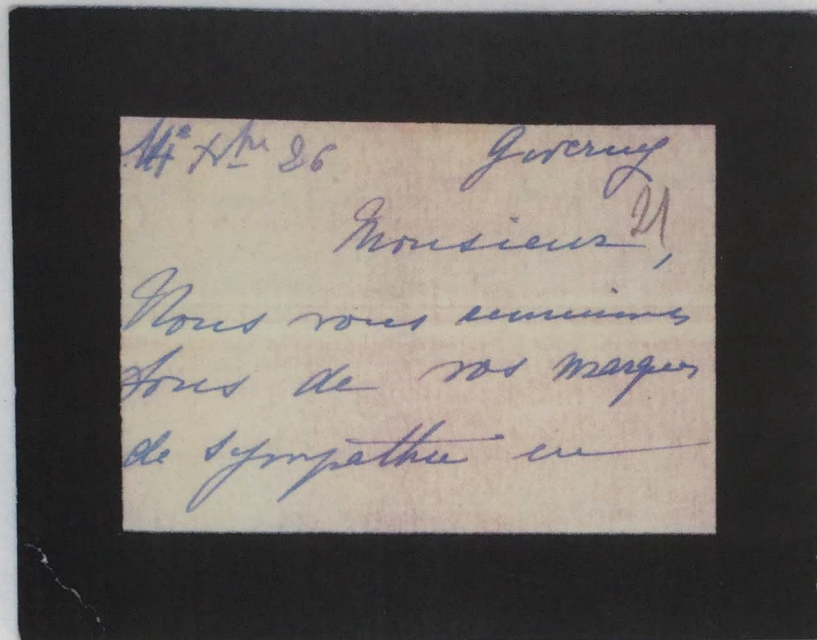 14 Xbre 26 Giverny
21
Monsieur,
Nous vous
tous de vos marques
de sympathie en